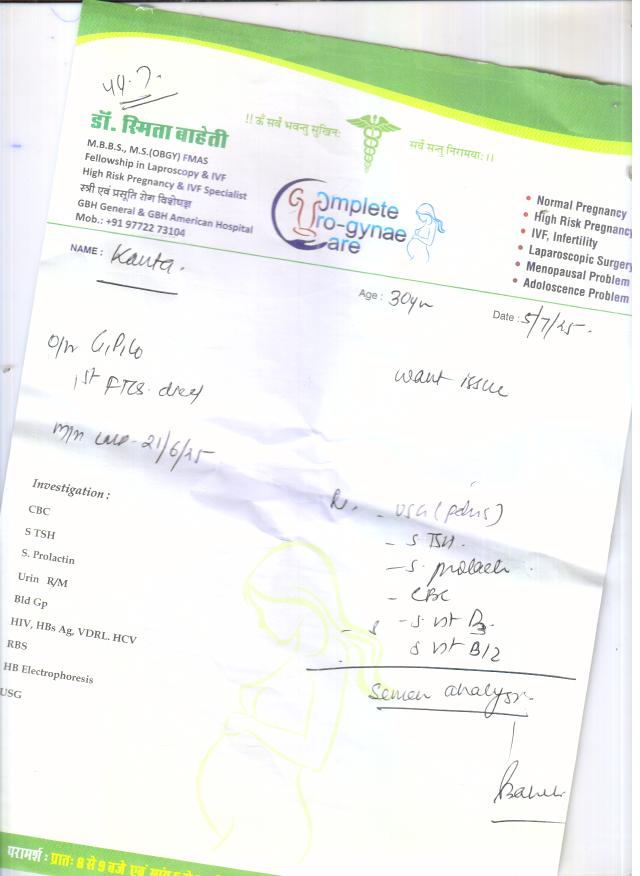 44.7
डॉ. स्मिता बाहेती
M.B.B.S., M.S.(OBGY) FMAS
Fellowship in Laproscopy & IVF
High Risk Pregnancy & IVF Specialist
स्त्री एवं प्रसूति रोग विशेषज्ञ
GBH General & GBH American Hospital
Mob.: +91 97722 73104
!! ॐ सर्वे भवन्तु सुखिनः
सर्वे सन्तु निरामयाः !!
Complete
Uro-gynae
Care
• Normal Pregnancy
• High Risk Pregnancy
• IVF, Infertility
• Laparoscopic Surgery
• Menopausal Problem
• Adoloscence Problem
NAME : Kanta.
Age : 30yr
Date : 5/7/25.
want issue
1st FTCS
21/6/25
Investigation :
CBC
S TSH
S. Prolactin
Urin R/M
Bld Gp
HIV, HBs Ag, VDRL. HCV
RBS
HB Electrophoresis
USG
- USG (pelvis)
- S TSH.
- S. prolactin.
- CBC
- S vit D3.
S vit B12
Semen analysis.
परामर्श : प्रातः 8 से 9 बजे एवं सायं